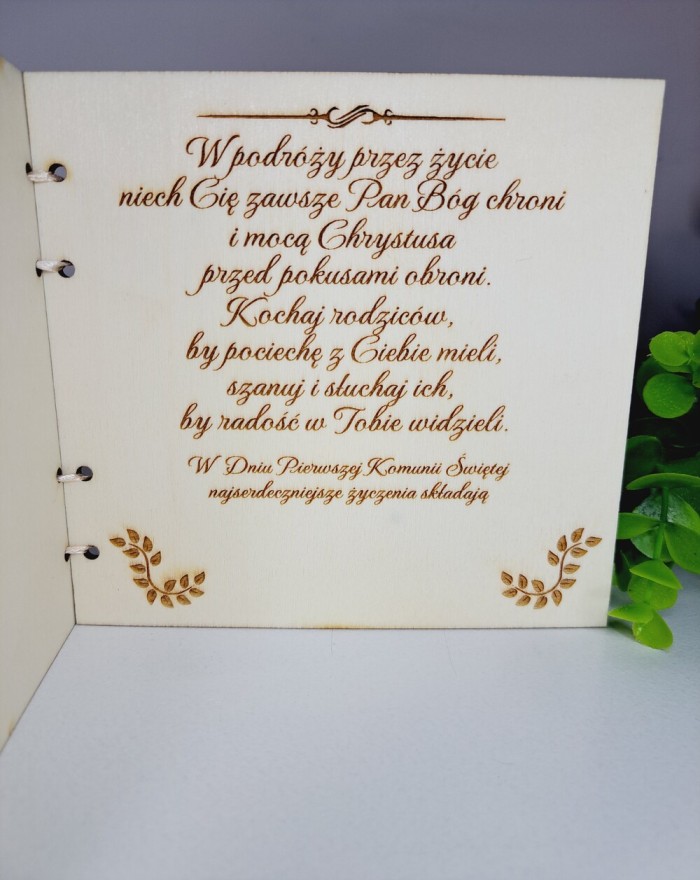 W podróży przez życie
niech Cię zawsze Pan Bóg chroni
i mocą Chrystusa
przed pokusami obroni.
Kochaj rodziców,
by pociechę z Ciebie mieli,
szanuj i słuchaj ich,
by radość w Tobie widzieli.
W Dniu Pierwszej Komunii Świętej
najserdeczniejsze życzenia składają